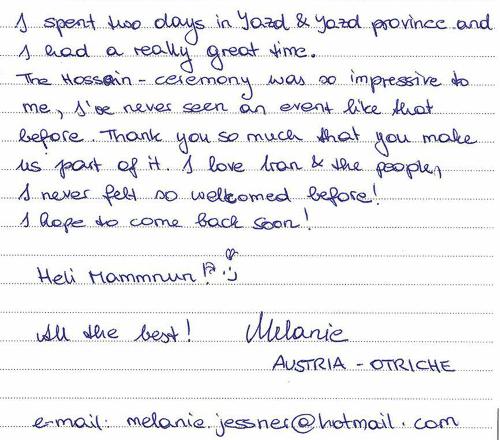 I spent two days in Yazd & Yazd province and
I had a really great time.
The Hossein - ceremony was so impressive to
me, I've never seen an event like that
before. Thank you so much that you make
us part of it. I love Iran & the people,
I never felt so welcomed before!
I hope to come back soon!
Heli Mammnun!? :)
All the best! Melanie
AUSTRIA - OTRICHE
e-mail: melanie.jessner@hotmail.com